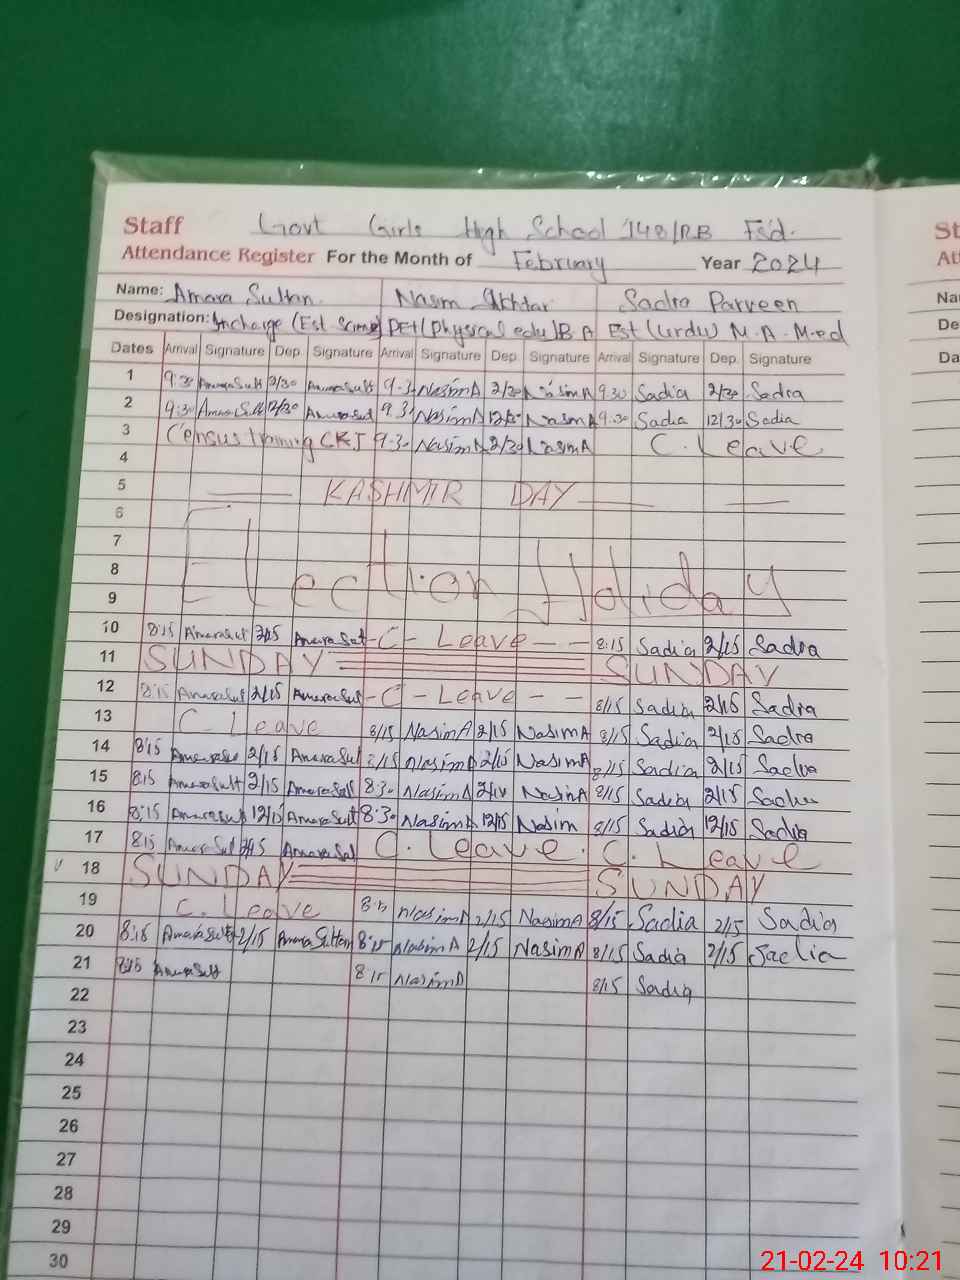 Staff Govt Girls High School 148/RB Fsd.
Attendance Register For the Month of February Year 2024
Name: Amara Sultan. Nasim Akhtar Sadia Parveen
Designation: Incharge (Est. Science) PET (Physical edu) B.A Est (urdu) M.A. M.ed
Dates Arrival Signature Dep. Signature Arrival Signature Dep. Signature Arrival Signature Dep. Signature
1 9:30 Amara Sult 2/30 Amara Sult 9.3 NasimA 2/30 NasimA 9.30 Sadia 2/30 Sadia
2 9:30 Amara Sult 12/30 Amara Sult 9.3 NasimA 12/30 NasimA 9.30 Sadia 12/30 Sadia
3 Census training CKJ 9.30 NasimA 2/30 NasimA C. Leave
4
5 KASHMIR DAY
6
7
8 Election Holiday
9
10 8:15 Amara Sult 2/15 Amara Sult - C - Leave - - 8:15 Sadia 2/15 Sadia
11 SUNDAY SUNDAY
12 8:15 Amara Sult 2/15 Amara Sult - C - Leave - - 8/15 Sadia 2/15 Sadia
13 C Leave 8/15 NasimA 2/15 NasimA 8/15 Sadia 2/15 Sadia
14 8:15 Amara Sul 2/15 Amara Sul NasimA 2/15 NasimA 8/15 Sadia 2/15 Sadia
15 8:15 Amara Sult 2/15 Amara Sult 8:30 NasimA NasimA 8/15 Sadia 2/15 Sadia
16 8:15 Amara Sult 12/15 Amara Sult 8:30 NasimA 12/15 Nasim 8/15 Sadia 12/15 Sadia
17 8:15 Amara Sul Amara Sul C. Leave. C. Leave
18 SUNDAY SUNDAY
19 C. Leave 8:15 NasimA 2/15 NasimA 8/15 Sadia 2/15 Sadia
20 8:15 Amara Sult 2/15 Amara Sultan 8:15 NasimA 2/15 NasimA 8/15 Sadia 2/15 Sadia
21 8:15 Amara Sult 8:15 NasimA 8/15 Sadia
22
23
24
25
26
27
28
29
30
St
Att
Na
De
Da
21-02-24 10:21